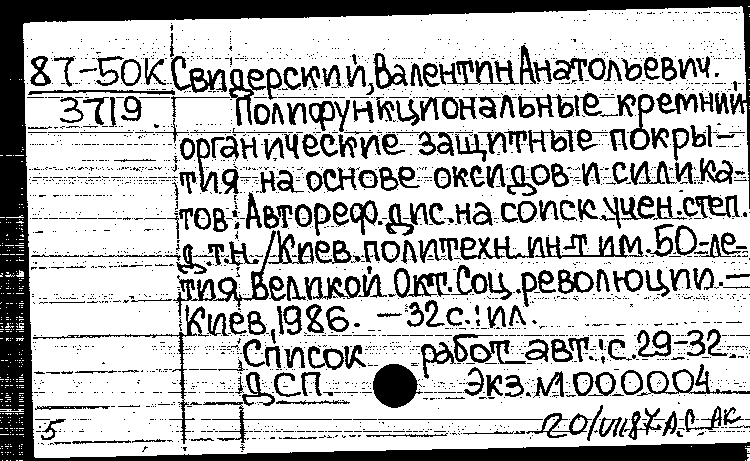 87-50К Свидерский, Валентин Анатольевич.
3719. Полифункциональные кремний
органические защитные покры-
тия на основе оксидов и силика-
тов: Автореф. дис. на соиск. учен. степ.
д.т.н. / Киев. политехн. ин-т им. 50-ле-
тия Великой Окт. Соц. революции. —
Киев, 1986. — 32 с.: ил.
Список работ авт.: с. 29-32
ДСП. Экз. №000004.
5 20/VII87 А.С. АК